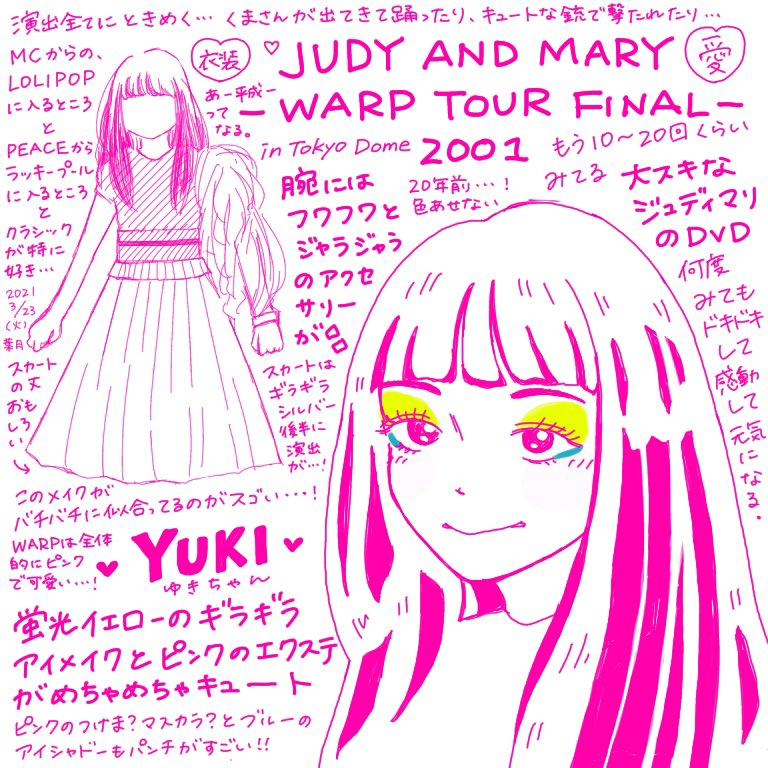 演出全てにときめく… くまさんが出てきて踊ったり、キュートな銃で撃たれたり…
MCからの、
LOLIPOP
に入るところ
と
PEACEから
ラッキープール
に入るところ
と
クラシック
が特に
好き…
2021
3/23
(火)
葉月
衣装
あー平成ー
って
なる。
♡ JUDY AND MARY
愛
ーWARP TOUR FINALー
in Tokyo Dome 2001
もう10〜20回くらい
みてる
大スキな
ジュディマリ
のDVD
何度
みても
ドキドキ
して
感動
して
元気
に
なる。
20年前…!
色あせない
腕には
フワフワと
ジャラジャラ
のアクセ
サリー
が
スカート
の丈
おもしろい
スカートは
ギラギラ
シルバー
後半に
演出
が…!
このメイクが
バチバチに似合ってるのがスゴい…!
WARPは全体
的にピンク
で可愛い…!
♥ YUKI ♥
ゆきちゃん
蛍光イエローのギラギラ
アイメイクとピンクのエクステ
がめちゃめちゃキュート
ピンクのつけま?マスカラ?とブルーの
アイシャドーもパンチがすごい!!